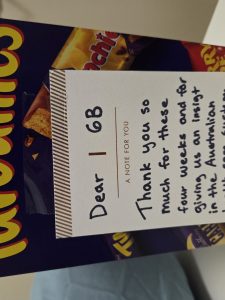 Dear | 6B
A NOTE FOR YOU
Thank you so
much for these
four weeks and for
giving us an insigt
in the Australian